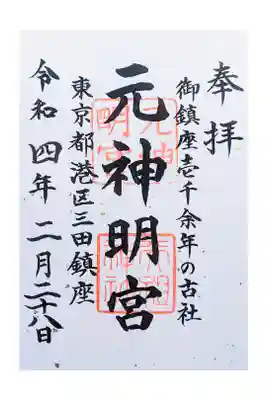 奉拝
御鎮座壱千余年の古社
元神明宮
東京都港区三田鎮座
令和四年二月二十八日
元神明宮